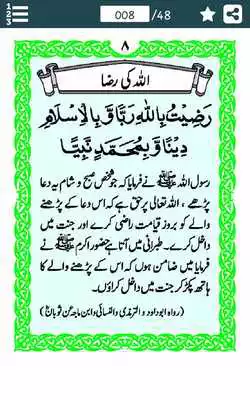 123
008 /48
۸
اللہ کی رضا
رَضِيْتُ بِاللّٰهِ رَبًّا وَّ بِالْاِسْلَامِ
دِيْنًا وَّ بِمُحَمَّدٍ نَبِيًّا
رسول اللہ ﷺ نے فرمایا کہ جو شخص صبح و شام یہ دعا
پڑھے ، اللہ تعالی پر حق ہے کہ اس دعا کے پڑھنے
والے کو بروز قیامت راضی کرے اور جنت میں
داخل کرے۔ طبرانی میں آتا ہے حضور اکرم ﷺ نے
فرمایا میں ضامن ہوں کہ اس کے پڑھنے والے کا
ہاتھ پکڑ کر جنت میں داخل کراؤں۔
(رواہ ابوداود و الترمذی والنسائی وابن ماجہ عن ثوبانؓ)